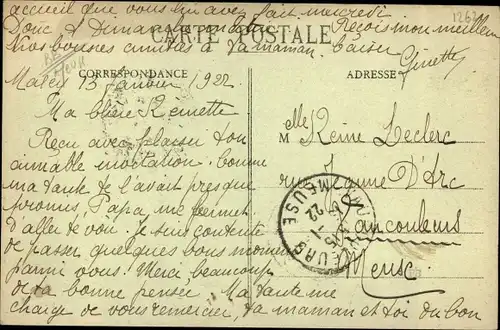 accueil que vous lui avez fait mercredi
Donc à Dimanche
Reçois mon meilleur
Nos bonnes amitiés à ta maman. baiser
Ginette
CARTE POSTALE
CORRESPONDANCE
ADRESSE
15 Janvier 1922
Ma chère Reinette
Reçu avec plaisir ton
aimable invitation. Comme
ma tante te l'avait presque
promis, Papa me permet
d'aller te voir. Je suis contente
de passer quelques bons moments
parmi vous. Merci beaucoup
de ta bonne pensée. Ma tante me
charge de vous remercier, ta maman et toi du bon
Melle Reine Leclerc
rue Jeanne D'Arc
Vaucouleurs
Meuse
MEUSE
22